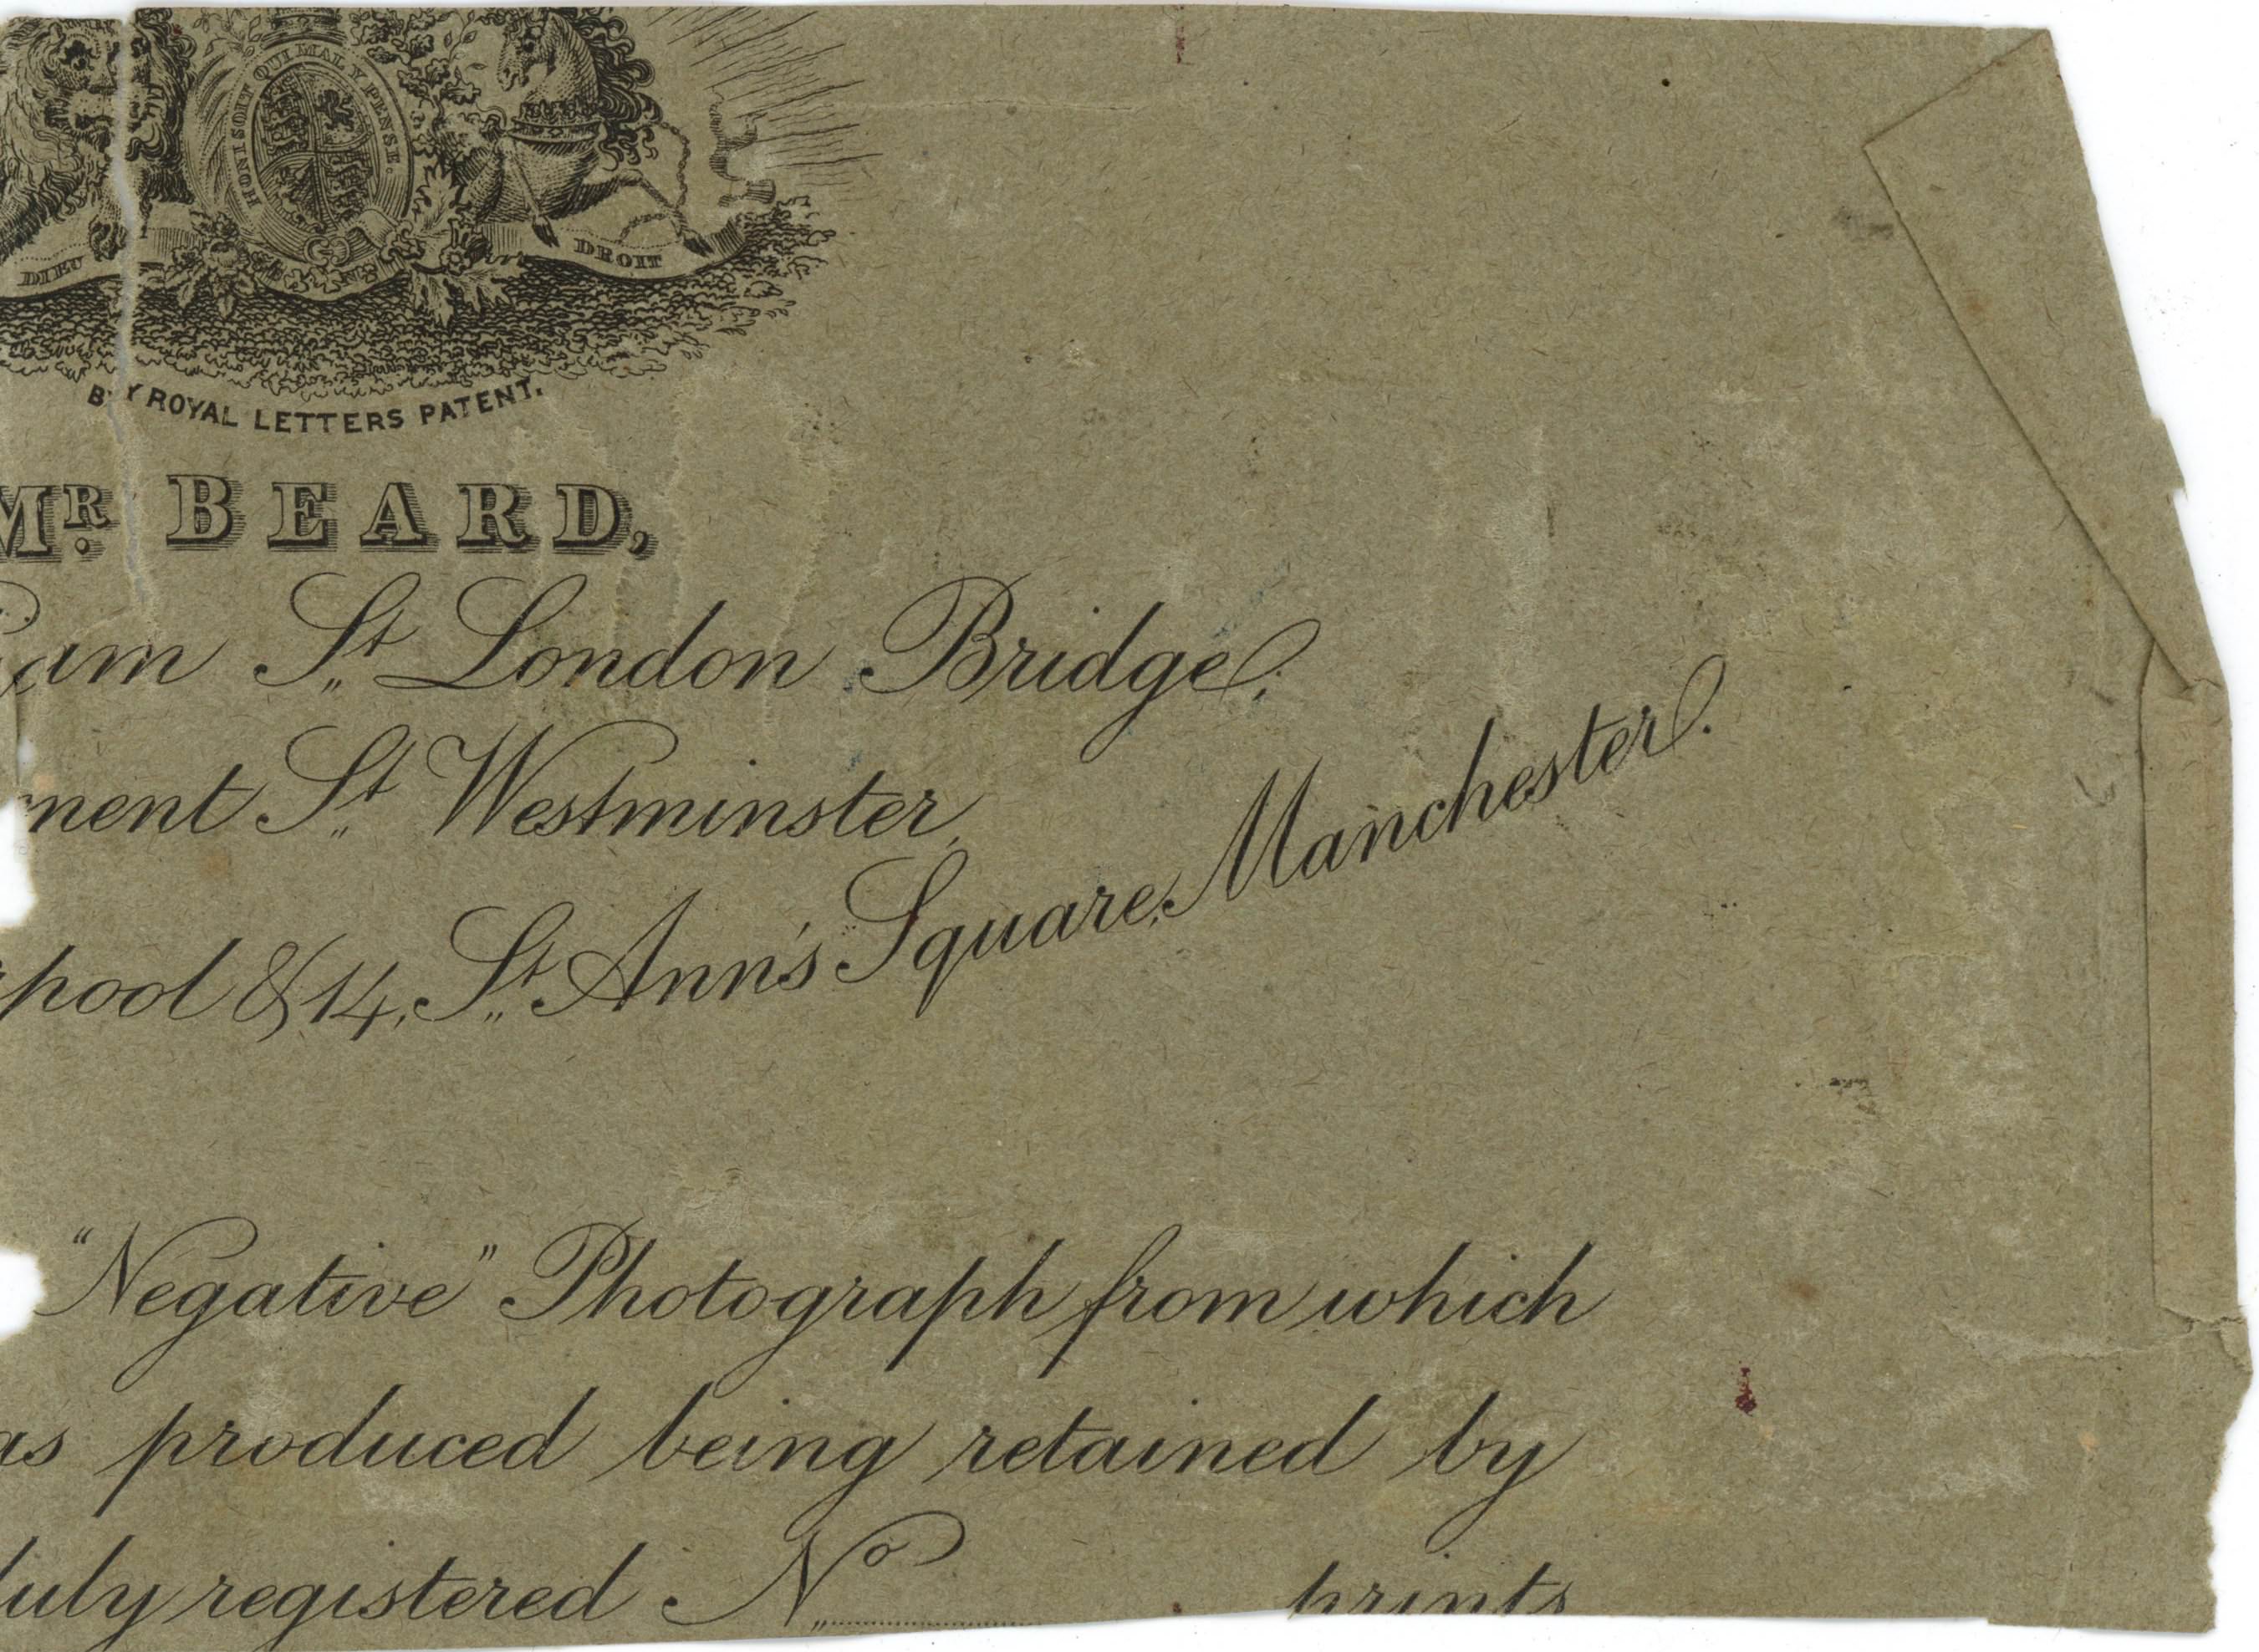 HONI SOIT QUI MAL Y PENSE.
DIEU DROIT
BY ROYAL LETTERS PATENT.
MR. BEARD,
am St. London Bridge;
ment St. Westminster,
pool & 14, St. Ann's Square, Manchester.
"Negative" Photograph from which
as produced being retained by
duly registered No prints